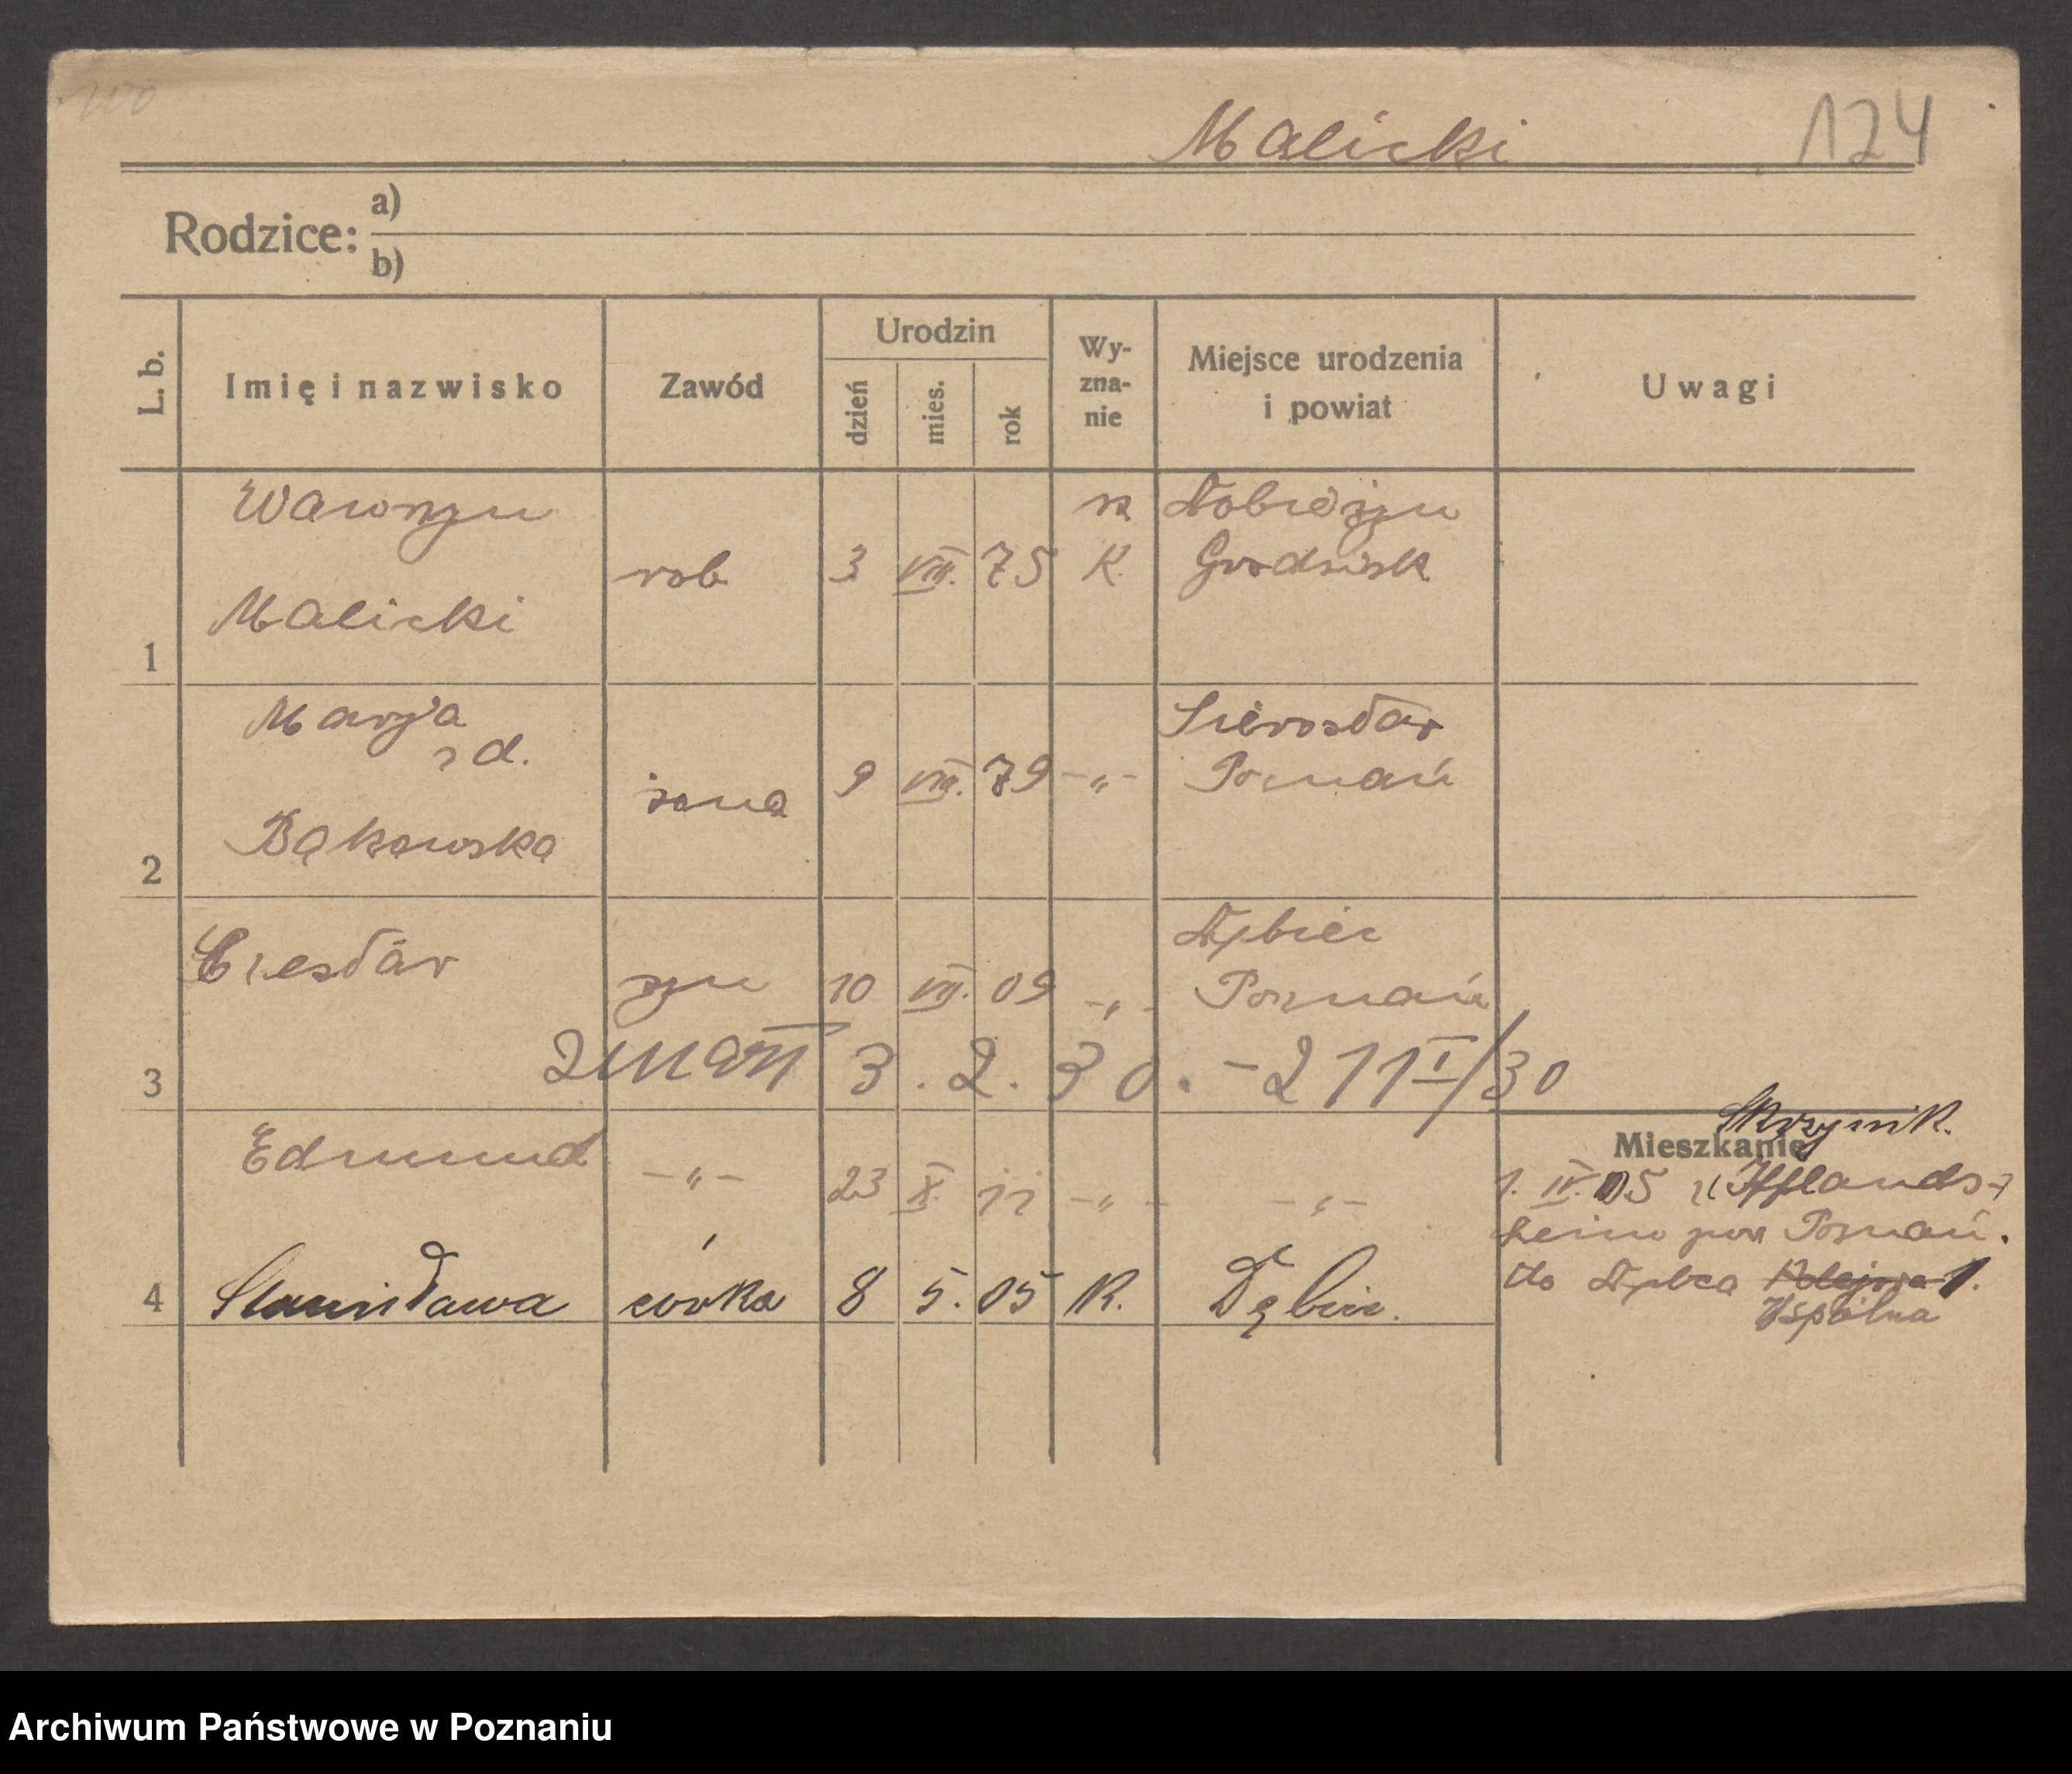 Malicki 124
Rodzice: a)
b)
L. b. Imię i nazwisko Zawód Urodzin dzień mies. rok Wy-zna-nie Miejsce urodzenia i powiat Uwagi
Wawrzyn
Malicki
1
rob 3 VIII. 75
rz
K.
Dobieżyn
Grodzisk
Marja
rd.
Bąkowska
2
żona 9 VIII. 79 -„-
Sierosław
Poznań
Czesław
3
syn 10 VII. 09 -„-
Dębiec
Poznań
zmarł 3.2.30. - 211 I/30
Edmund -„- 23 X. 11 -„- -„-
4 Stanisława córka 8 5. 05 K. Dębiec.
Mieszkanie
1. IV. 05 z Ifflands-
heimo pow Poznań.
do Dębca Kolejowa 1.
Wspólna
Archiwum Państwowe w Poznaniu